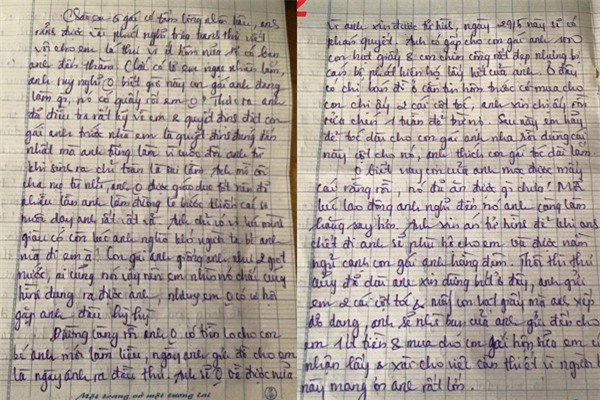 Chào em 6 gái có tấm lòng nhân hậu, anh
rảnh được vài phút nghỉ trưa tranh thủ viết
vội cho em lá thư vì 2 hôm nữa sẽ có bạn
anh đến thăm. Chắc có lẽ em ngạc nhiên lắm,
anh suy nghĩ 0 biết giờ này con gái anh đang
làm gì, nó có quấy rồi em 0? Thực ra anh
đã điều tra rất kỹ về em & quyết định đặt con
gái anh trước nhà em là quyết định đúng đắn
nhất mà anh từng làm vì cuộc đời anh từ
khi sinh ra chỉ toàn là sai lầm. Anh mồ côi
cha mẹ từ nhỏ, anh 0 được giáo dục tốt nên đã
nhiều lần anh lầm đường lỡ bước thiên cai sẽ
nuôi dạy anh rất vất vả. Anh
giàu có còn lúc anh nghèo khó người ta bỏ anh
mà đi em ạ! Con gái anh giống anh như 2 giọt
nước, ai cũng nói vậy nên em nhìn nó chắc cũng
hình dung ra được anh, nhưng em 0 có cơ hội
gặp anh đâu hy hy
Đường cùng rồi anh 0 có tiền lo cho con
bé anh mới làm liều, ngày anh gửi nó cho em
là ngày anh ra đầu thú, anh sẽ 0 về được nữa
Một tháng với một tương lai
2
Vì anh xin được tử hình, ngày 29/5 này sẽ có
phán quyết. Anh có gấp cho con gái anh 1000
con hạt giấy & con chim công rất đẹp nhưng bị
cán bộ phát hiện họ lấy hết của anh. Ở đây
có chị bán đồ ở căn tin hôm trước có mua cho
con chị ấy 2 cái cột tóc, anh xin chị ấy rồi
rửa chén 1 tuần để trả nợ. Sau này em hãy
để tóc dài cho con gái anh nha rồi dùng cái
này cột cho nó, anh thích con gái tóc dài lắm
0 biết nay con của anh mọc được mấy
cái răng rồi, nó đã ăn được gì chưa? Mỗi
lúc lao động anh nghĩ đến nó anh càng làm
hăng say hơn. Anh xin án tử hình để khi anh
chết đi anh sẽ phù hộ cho em và được nằm
ngủ cạnh con gái anh hằng đêm. Thôi thì thư
cũng đã dài anh xin dừng bút ở đây, anh gửi
em 2 cái cột tóc & mấy con hạt giấy mà anh xếp
dở dang, anh sẽ nhờ bạn của anh gửi đến cho
em 1 ít tiền & mua cho con gái hộp sữa em cứ
nhận lấy & xài cho việc cần thiết vì người bạn
này mang ơn anh rất lớn.